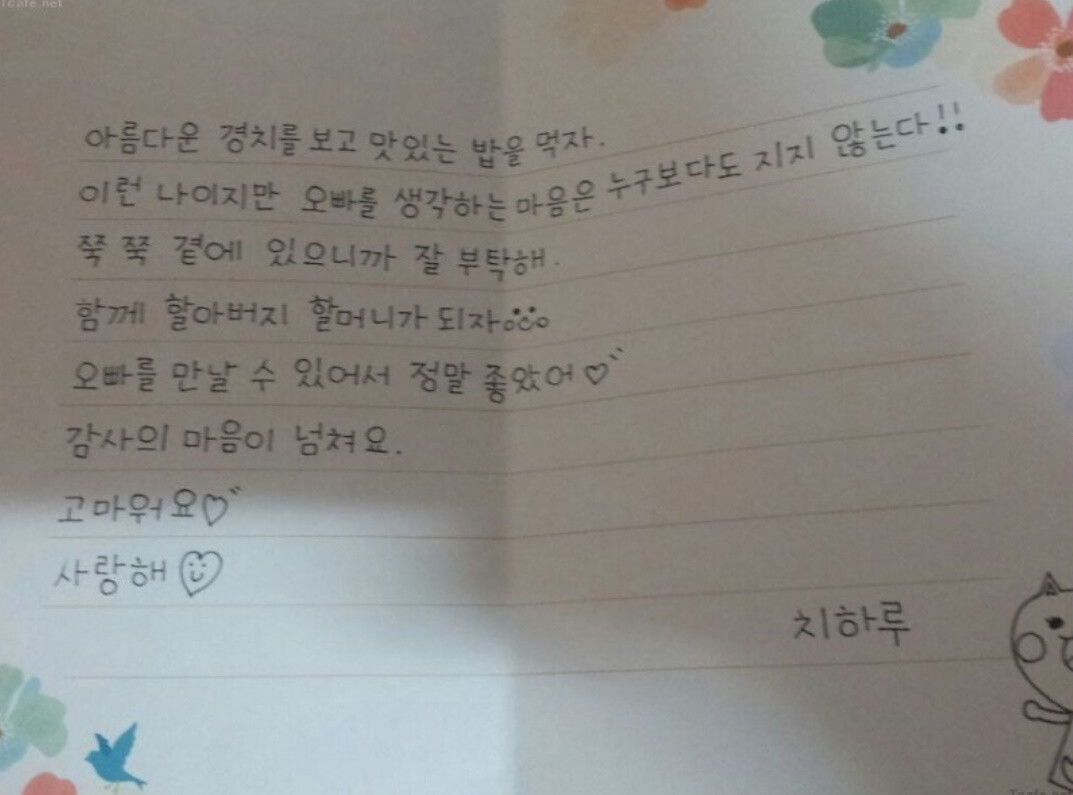 Tcafe.net
아름다운 경치를 보고 맛있는 밥을 먹자.
이런 나이지만 오빠를 생각하는 마음은 누구보다도 지지 않는다!!
쭉 쭉 곁에 있으니까 잘 부탁해.
함께 할아버지 할머니가 되자
오빠를 만날 수 있어서 정말 좋았어♡
감사의 마음이 넘쳐요.
고마워요♡
사랑해
치하루